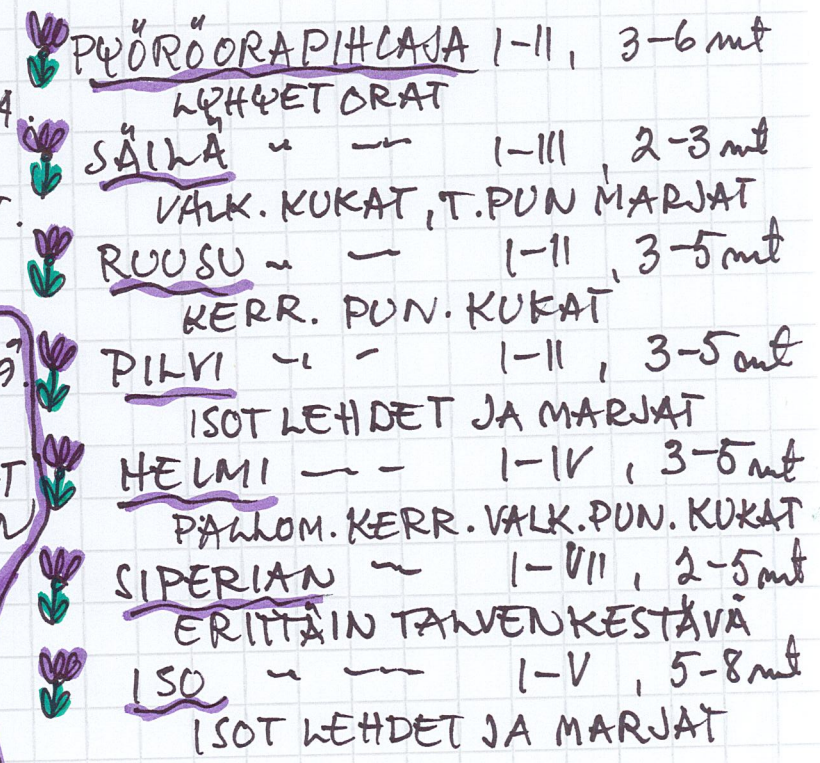 PYÖRÖORAPIHLAJA I-II, 3-6 mt
LYHYET ORAT
SÄILÄ " — I-III, 2-3 mt
VALK. KUKAT, T.PUN MARJAT
RUUSU " — I-II, 3-5 mt
KERR. PUN. KUKAT
PILVI " – I-II, 3-5 mt
ISOT LEHDET JA MARJAT
HELMI — – I-IV, 3-5 mt
PALLOM. KERR. VALK. PUN. KUKAT
SIPERIAN — I-VII, 2-5 mt
ERITTÄIN TALVENKESTÄVÄ
ISO " — I-V, 5-8 mt
ISOT LEHDET JA MARJAT